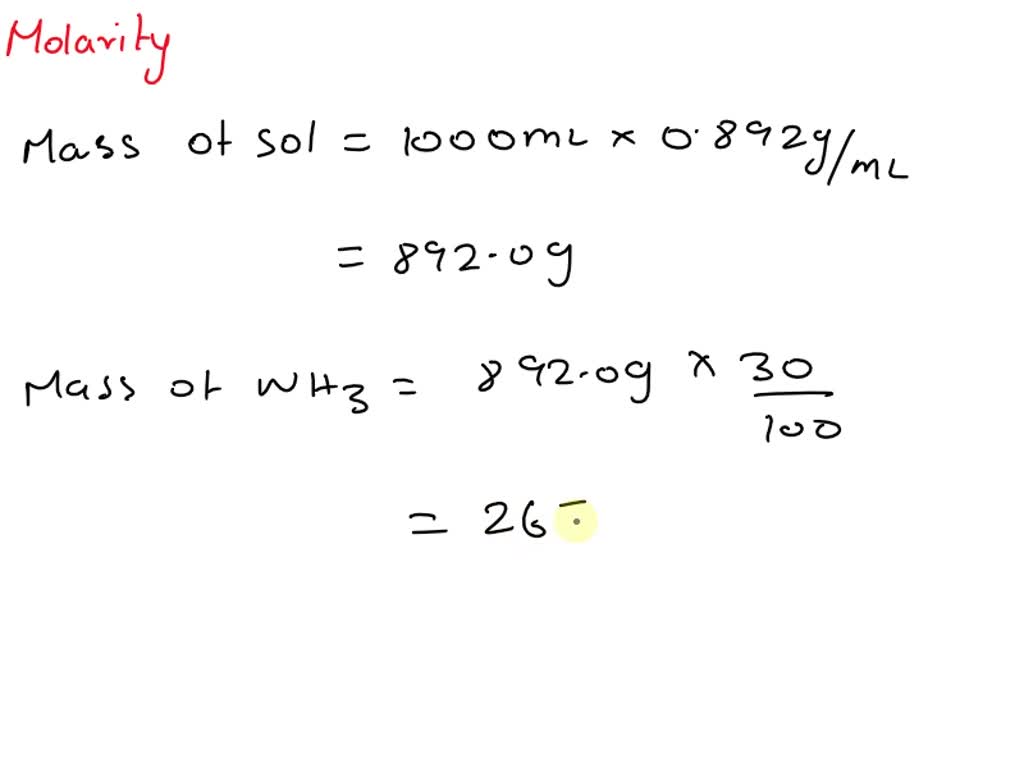 Molarity
Mass of sol = 1000mL × 0.892g/mL
= 892.0g
Mass of NH3 = 892.0g × 30/100
= 26